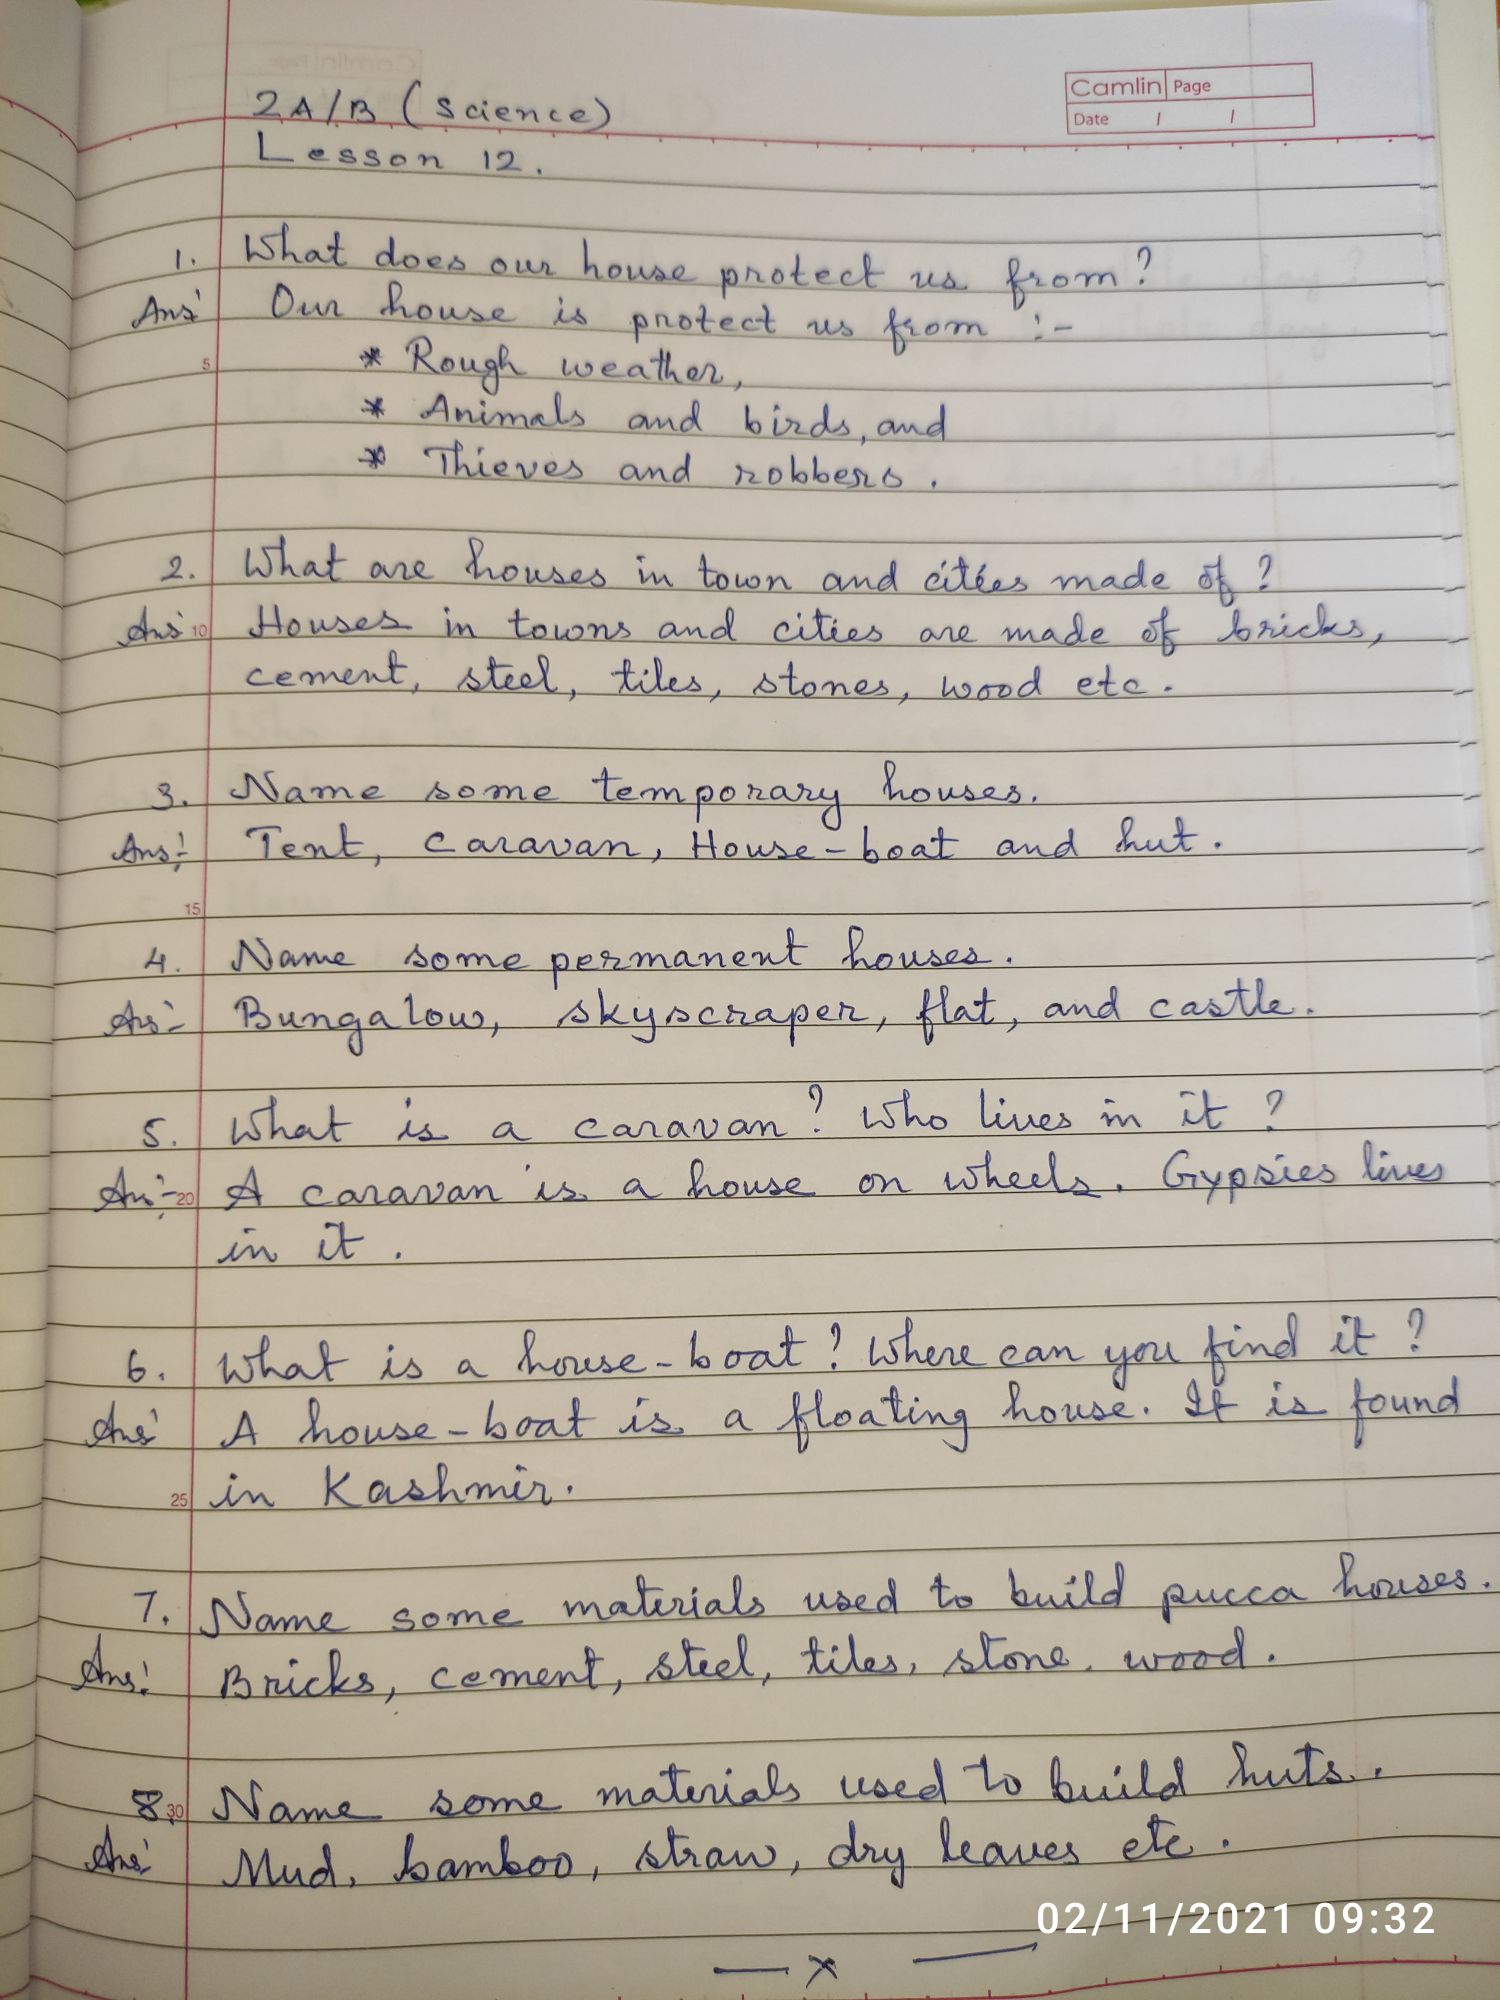 Camlin Page
Date / /
2A/B (Science)
Lesson 12.
1. What does our house protect us from?
Ans: Our house is protect us from :-
* Rough weather,
* Animals and birds, and
* Thieves and robbers.
2. What are houses in town and cities made of?
5
Ans: 10 Houses in towns and cities are made of bricks,
cement, steel, tiles, stones, wood etc.
3. Name some temporary houses.
Ans:- Tent, caravan, House-boat and hut.
15
4. Name some permanent houses.
Ans:- Bungalow, skyscraper, flat, and castle.
5. What is a caravan? Who lives in it?
Ans:- 20 A caravan is a house on wheels. Gypsies lives
in it.
6. What is a house-boat? Where can you find it?
Ans: A house-boat is a floating house. It is found
25 in Kashmir.
7. Name some materials used to build pucca houses.
Ans: Bricks, cement, steel, tiles, stone, wood.
8. 30 Name some materials used to build huts.
Ans: Mud, bamboo, straw, dry leaves etc.
02/11/2021 09:32
— x —